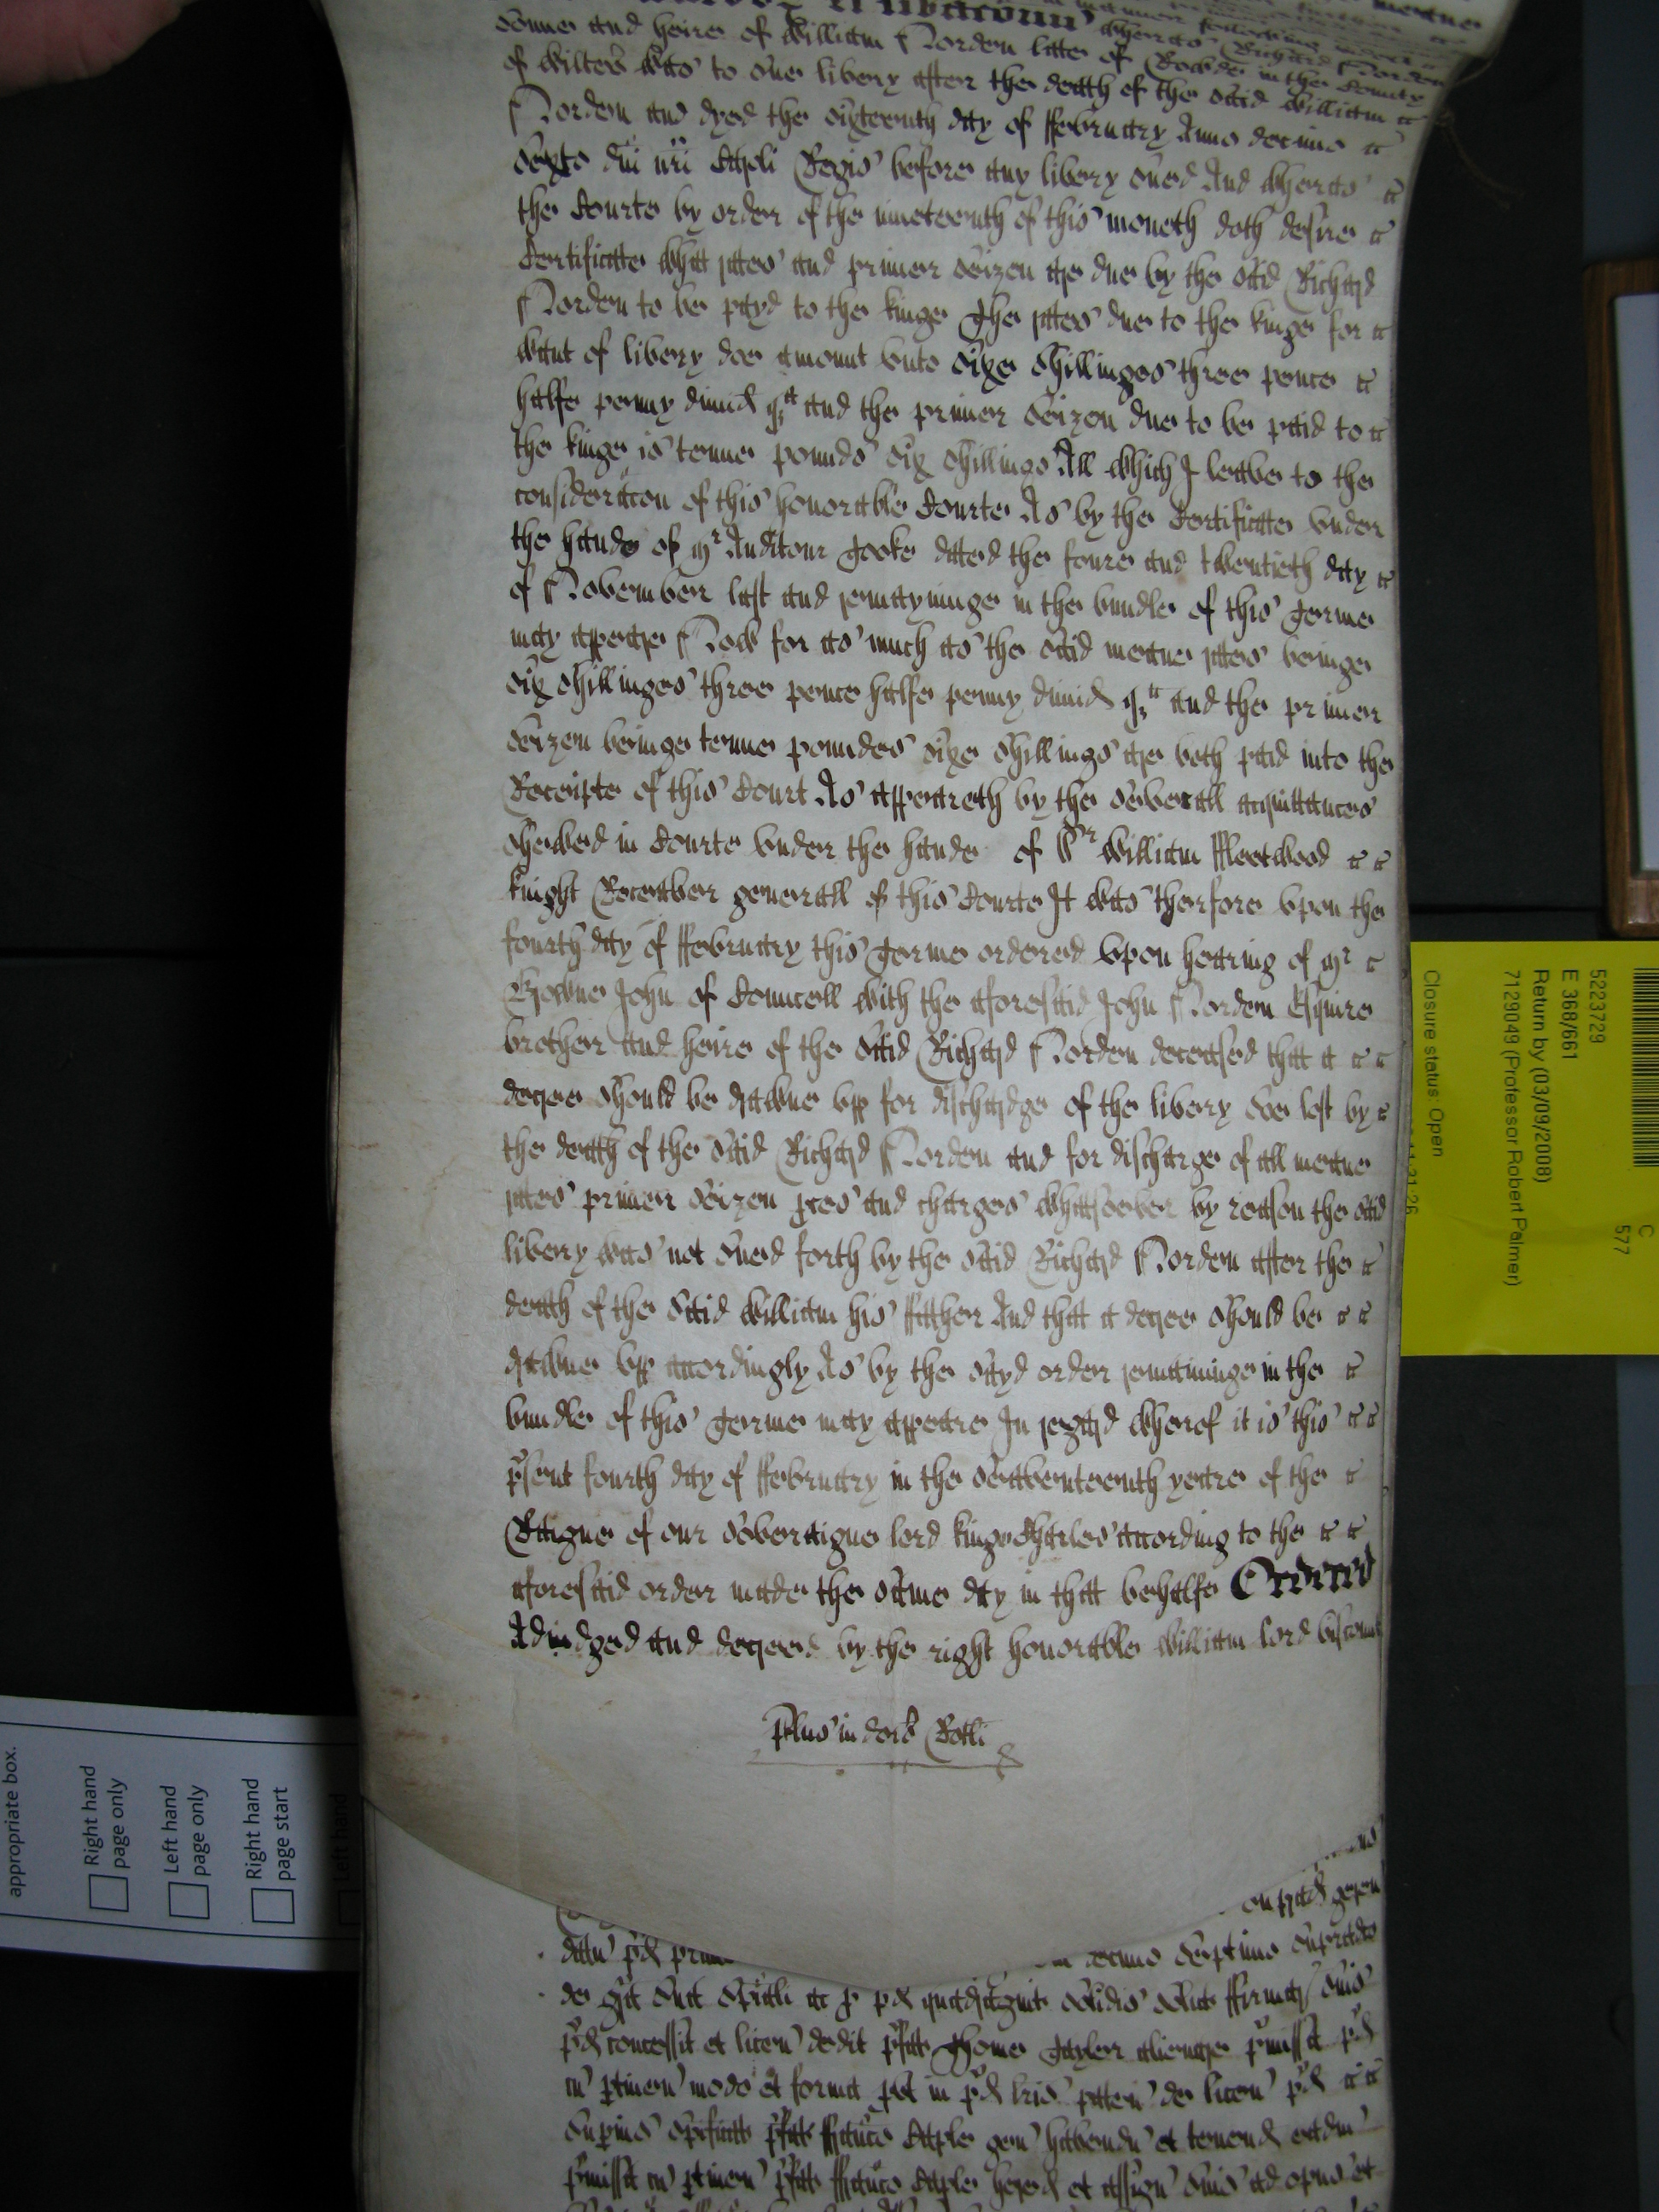 sonne and heire of William Norden late of Rowde in the County
of wiltes was to sue livery after the death of the said William
Norden and dyed the sixteenth day of ffebruary Anno decimo
sexto dni nri Caroli Regis before any livery sued And wheras
the Courte by order of the nineteenth of this moneth doth desire
Certificate what rates and primer seizen are due by the said Richard
Norden to be payd to the kinge The rates due to the kinge for
want of livery doe amount vnto sixe shillinges three pence
halfe penny dimid qa and the primer seizen due to be paid to
the kinge is tenne pounds six shillings All which I leave to the
consideracon of this honorable Courte As by the Certificate vnder
the hande of Mr Auditour Tooke dated the foure and twentieth day
of November last and remayninge in the bundle of this Terme
may appeare Now for as much as the said meane rates beinge
six shillinges three pence halfe penny dimid qa and the primer
seizen beinge tenne poundes sixe shillings are both paid into the
Receipte of this Court As appeareth by the severall acquittances
shewed in Courte vnder the hande of Sr William ffleetwood
knight Receaver generall of this Courte It was therfore vpon the
fourth day of ffebruary this Terme ordered vpon hearing of Mr
Browne John of Councell with the aforesaid John Norden Esquire
brother and heire of the said Richard Norden deceased that a
decree should be drawne vpp for discharge of the livery soe lost by
the death of the said Richard Norden and for discharge of all meane
rates primer seizen fees and charges whatsoever by reason the said
livery was not sued forth by the said Richard Norden after the
death of the said William his ffather And that a decree should be
drawne vpp accordingly As by the sayd order remaininge in the
bundle of this Terme may appeare In regard wherof it is this
psent fourth day of ffebruary in the seaventeenth yeare of the
Raigne of our Soveraigne lord kinge Charles according to the
aforesaid order made the same day in that behalfe Ordered
Adiudged and decreed by the right honorable William lord viscount
Plus in dorso Rotli
decimo septimo supradco
de gra sua spiali ac p pd quadragint solidis
pd concessit et licenc dedit pfat Thome Tayler alienare pmissa pd
cu ptinen modo et forma put in pd lris paten de licenc pd
supius spificat pfat ffrancis Caple gen habend et tenend eadm
pmissa cu ptinen pfat ffrancis Caple hered et assign suis ad opus et
5223729
E 368/661
Return by (03/09/2008)
7129049 (Professor Robert Palmer)
Closure status: Open
C
577
11:31:26
appropriate box.
Right hand
page only
Left hand
page only
Right hand
page start
Left hand